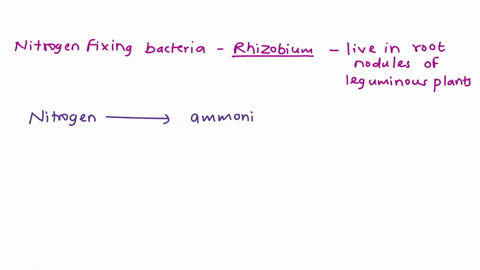 Nitrogen fixing bacteria - Rhizobium - live in root
nodules of
leguminous plants
Nitrogen ⟶ ammoni